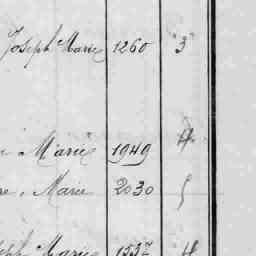 Joseph Marie 1260 3
Marie 1949 4
re, Marie 2030 5
eph Marie 1537 4